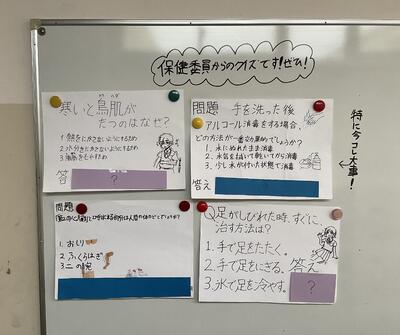 保健委員からのクイズです!ぜひ!
寒いと鳥肌が
たつのはなぜ?
1.熱をにがさないようにするため
2.水分をにがさないようにするため
3.脂肪をもやすため
答
?
問題 手を洗った後
アルコール消毒をする場合、
どの方法が一番効果的でしょうか?
1. 水にぬれたまま消毒
2. 水気を拭いて乾いてから消毒
3. 少し水が付いた状態で消毒
答え
特に今コレ大事!
問題
「第二の心臓」と呼ばれる部分は人間の体のどこでしょうか?
1. おしり
2. ふくらはぎ
3. 二の腕
Q足がしびれた時、すぐに
治す方法は?
1. 手で足をたたく。
2. 手で足をにぎる。
3. 氷で足を冷やす。
答え
?